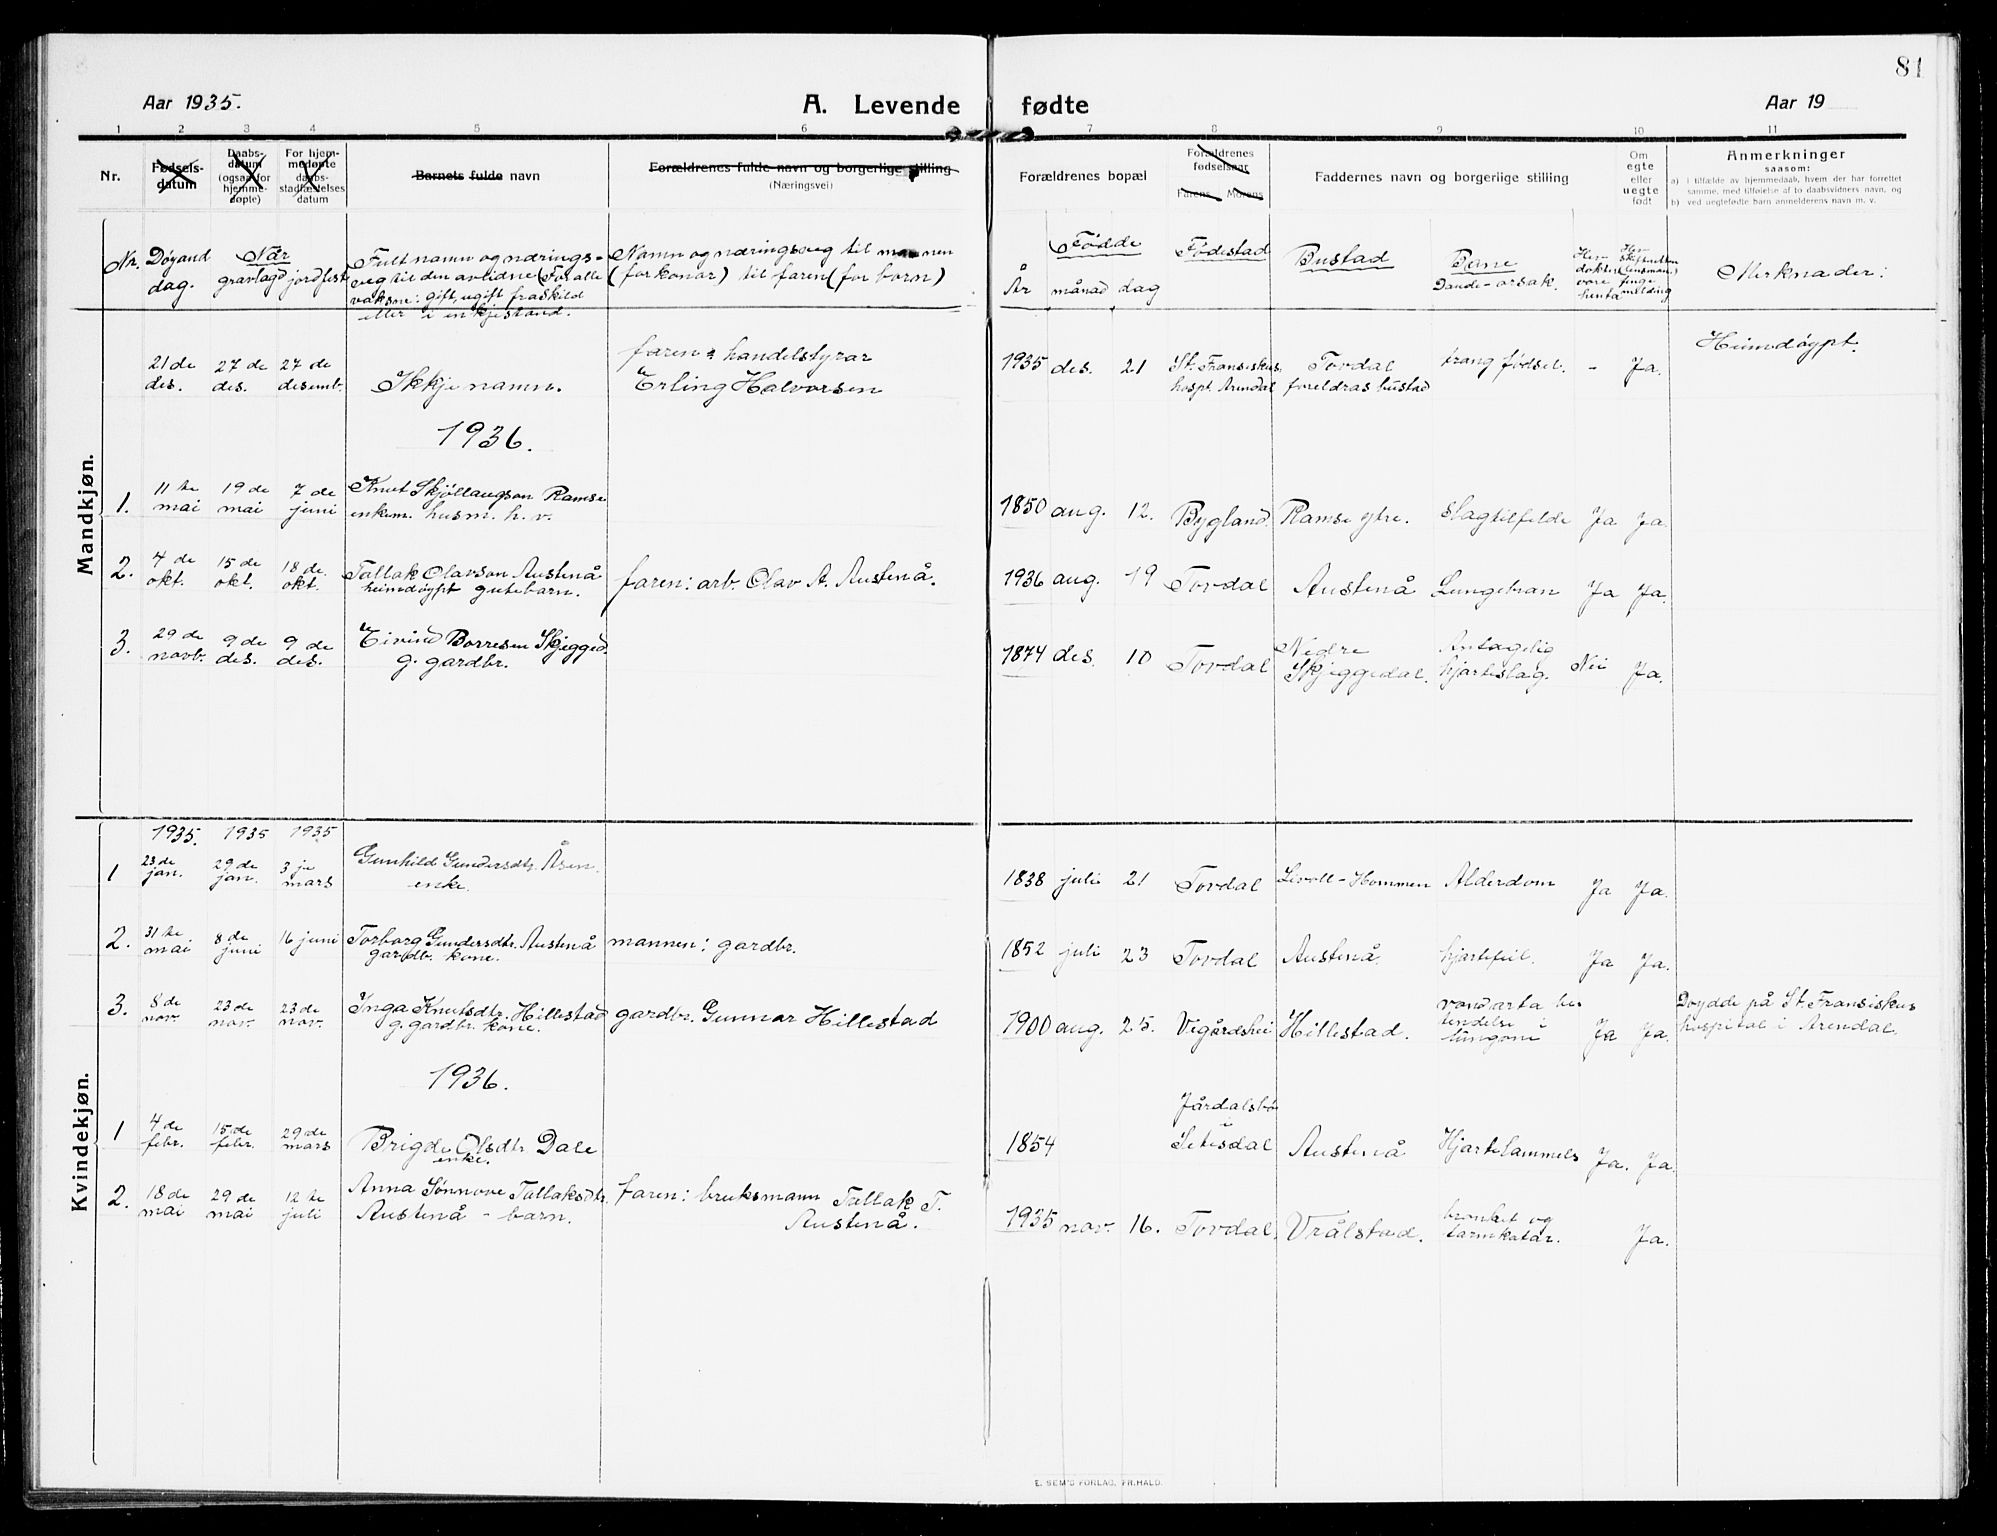 81
Aar 1935.
A. Levende fødte
Aar 19
1 2 3 4 5 6 7 8 9 10 11
Nr.
Fødsels-
datum
Daabs-
datum
(ogsaa for
hjemme-
døpte)
For hjem-
medøpte
daabs-
stadfæstelses
datum
Barnets fulde navn
Forældrenes fulde navn og borgerlige stilling
(Næringsvei)
Forældrenes bopæl
Forældrenes
fødselsaar
Farens Morens
Faddernes navn og borgerlige stilling
Om
egte
eller
uegte
født
Anmerkninger
saasom:
a) i tilfælde av hjemmedaab, hvem der har forrettet
samme, med tilføielse af to daabsvidners navn, og
b) ved uegtefødte barn anmelderens navn m. v.
Nr.
Døyand
dag.
Når
gravlagd jordfest
Fullt namn og nærings-
veg til den avlidne (For alle
vaksne: gift, ugift fraskild
eller i enkjestand.
Namn og næringsveg til mannen
(for konor) til faren (for born)
Fødde
År månad dag
Fødestad
Bustad
Bane
Daude-orsak.
Merknader:
Mandkjøn.
21 de
des.
27 de
des.
27 de
desemb.
Ikkje namn.
faren: handelstyrar
Erling Halvorsen
1935 des. 21
St. Fransiskus.
hospt. Arendal
Tovdal
foreldras bustad
trang fødsel.
-
Ja.
Heimdøypt.
1936.
1.
11 te
mai
19 de
mai
7 de
juni
Knut Skjøllaugson Ramse
enkem. husm. h. v.
1850 aug. 12.
Bygland
Ramse ytre.
slagtilfelde
Ja Ja.
2.
4 de
okt.
15 de
okt.
18 de.
okt.
Tallak Olavson Austenå
heimdøypt gutebarn.
faren: arb. Olav A. Austenå.
1936 aug. 19
Tovdal
Austenå
Lungebran
Ja Ja.
3.
29 de
novb.
9 de
des.
9 de
des.
Eivind Borresen Skjegged.
g. gardbr.
1874 des. 10
Tovdal
Nedre
Skjeggedal.
Antagelig
hjarteslag.
Nei Ja.
Kvindekjøn.
1935. 1935 1935
1
23 de
jan.
29 de
jan.
3 je
mars
Gunhild Gundersdtr. Åsen.
enke.
1838 juli 21
Tovdal
Alderdom
Ja Ja.
2.
31 te
mai
8 de
juni
16 juni
Torborg Gundersdtr. Austenå
gardbr. kone.
mannen: gardbr.
1852 juli 23
Tovdal
Austenå.
hjartefeil.
Ja Ja.
3.
8 de
nov.
23 de
nov.
23 de
nov.
Inga Knutsdtr. Hillestad
g. gardbr. kone.
gardbr. Gunnar Hillestad
1900 aug. 25.
Vegårdshei
Hillestad.
vondarta be-
tendelse i
lungone
Ja Ja.
Døydde på St. Fransiskus
hospital i Arendal.
1936.
1
4 de
febr.
15 de
febr.
29 de
mars
Brigde Olsdtr. Dale
enke.
1854
Setesdal
Austenå
Hjartelammels
Ja. Ja
2.
18 de
mai
29 de
mai
12 te
juli
Anna Sønnove Tallaksdtr.
Austenå - barn.
faren: bruksmann Tallak T.
Austenå.
1935 nov. 16.
Tovdal.
Vrålstad.
bronket og
tarmkatar.
Ja.
E. SEM'S FORLAG, FR.HALD.